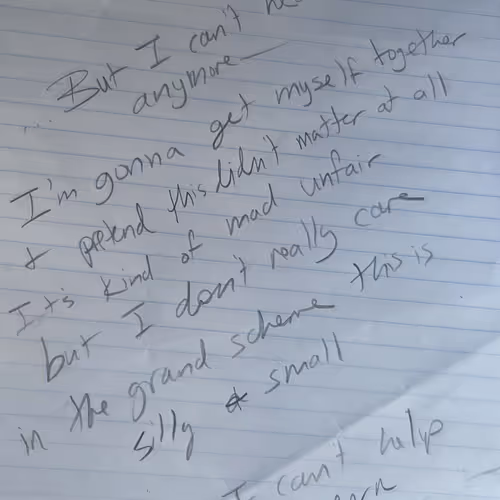 But I can't
anymore—
I'm gonna get myself together
+ pretend this didn't matter at all
It's kind of mad unfair
but I don't really care
in the grand scheme this is
silly & small
I can't help